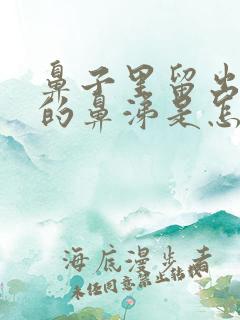 鼻子里留出
的鼻涕是怎
海底漫步者
未经同意禁止转载